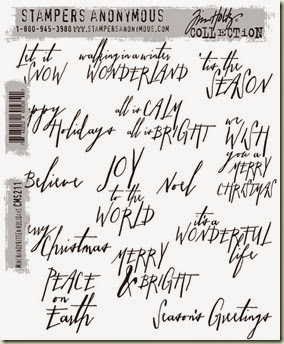 STAMPERS ANONYMOUS
1-800-945-3980 WWW.STAMPERSANONYMOUS.COM
Tim Holtz
COLLECTION
Let it
SNOW
walking in a winter
WONDERLAND
'tis the
SEASON
ppy
Holidays
all is CALM
all is BRIGHT
we
WISH
you a
MERRY
CHRISTMAS
Believe
JOY
to the
WORLD
Noel
it's a
WONDERFUL
life
Christmas
MERRY
& BRIGHT
PEACE
on
Earth
Season's Greetings
CMS211